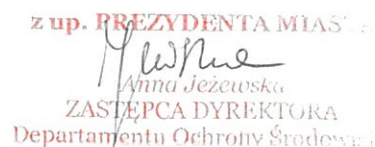 z up. PREZYDENTA MIAS
Anna Jeżewska
ZASTĘPCA DYREKTORA
Departamentu Ochrony Środow